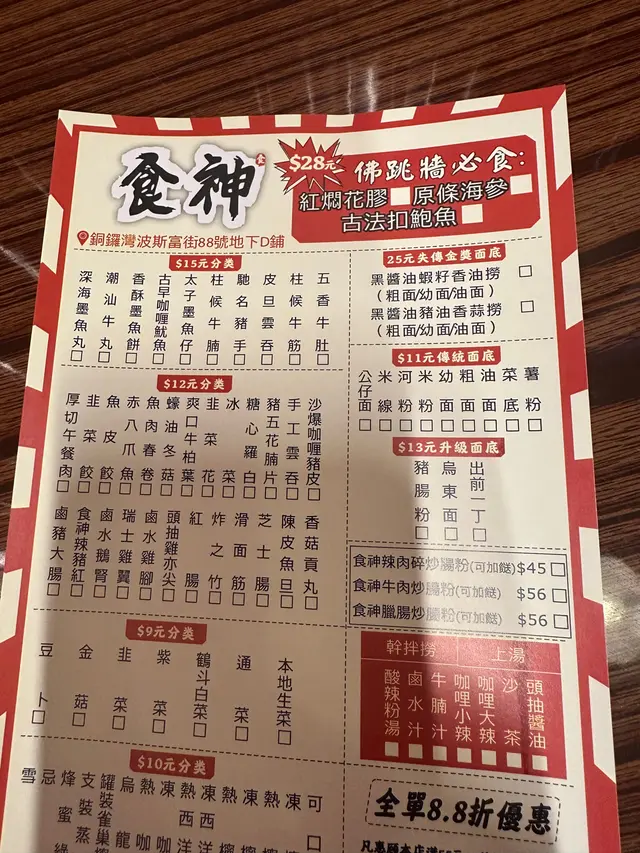 食神
食
銅鑼灣波斯富街88號地下D鋪
$28元
佛跳牆必食:
紅燜花膠 原條海參
古法扣鮑魚
$15元分类
深海墨魚丸
潮汕牛丸
香酥墨魚餅
古早咖喱魷魚
太子墨魚仔
柱候牛腩
馳名豬手
皮旦雲吞
柱候牛筋
五香牛肚
$12元分类
厚切午餐肉
韭菜餃
魚皮餃
赤八爪魚
魚肉春卷
蠔油冬菇
爽口牛柏葉
韭菜花
冰菜
糖心羅白
豬五花腩片
手工雲吞
沙爆咖喱豬皮
鹵豬大腸
食神辣豬紅
鹵水鵝腎
瑞士雞翼
鹵水雞腳
頭抽雞亦尖
紅腸
炸之竹
滑面筋
芝士腸
陳皮魚旦
香菇貢丸
$9元分类
豆卜
金菇
韭菜
紫菜
鶴斗白菜
通菜
本地生菜
$10元分类
雪
忌
烽蜜綠
支裝蒸
罐裝雀巢
烏龍
熱咖
凍西洋
熱西洋
凍檸
熱檸
凍檸
可口
25元失傳金獎面底
黑醬油蝦籽香油撈
(粗面/幼面/油面)
黑醬油豬油香蒜撈
(粗面/幼面/油面)
$11元傳統面底
公仔面
米線
河粉
米粉
幼面
粗面
油面
菜底
薯粉
$13元升級面底
豬腸粉
烏東面
出前一丁
食神辣肉碎炒腸粉(可加餸)$45
食神牛肉炒腸粉(可加餸) $56
食神臘腸炒腸粉(可加餸) $56
幹拌撈 上湯
酸辣粉湯
鹵水汁
牛腩汁
咖哩小辣
咖哩大辣
沙茶
頭抽醬油
全單8.8折優惠